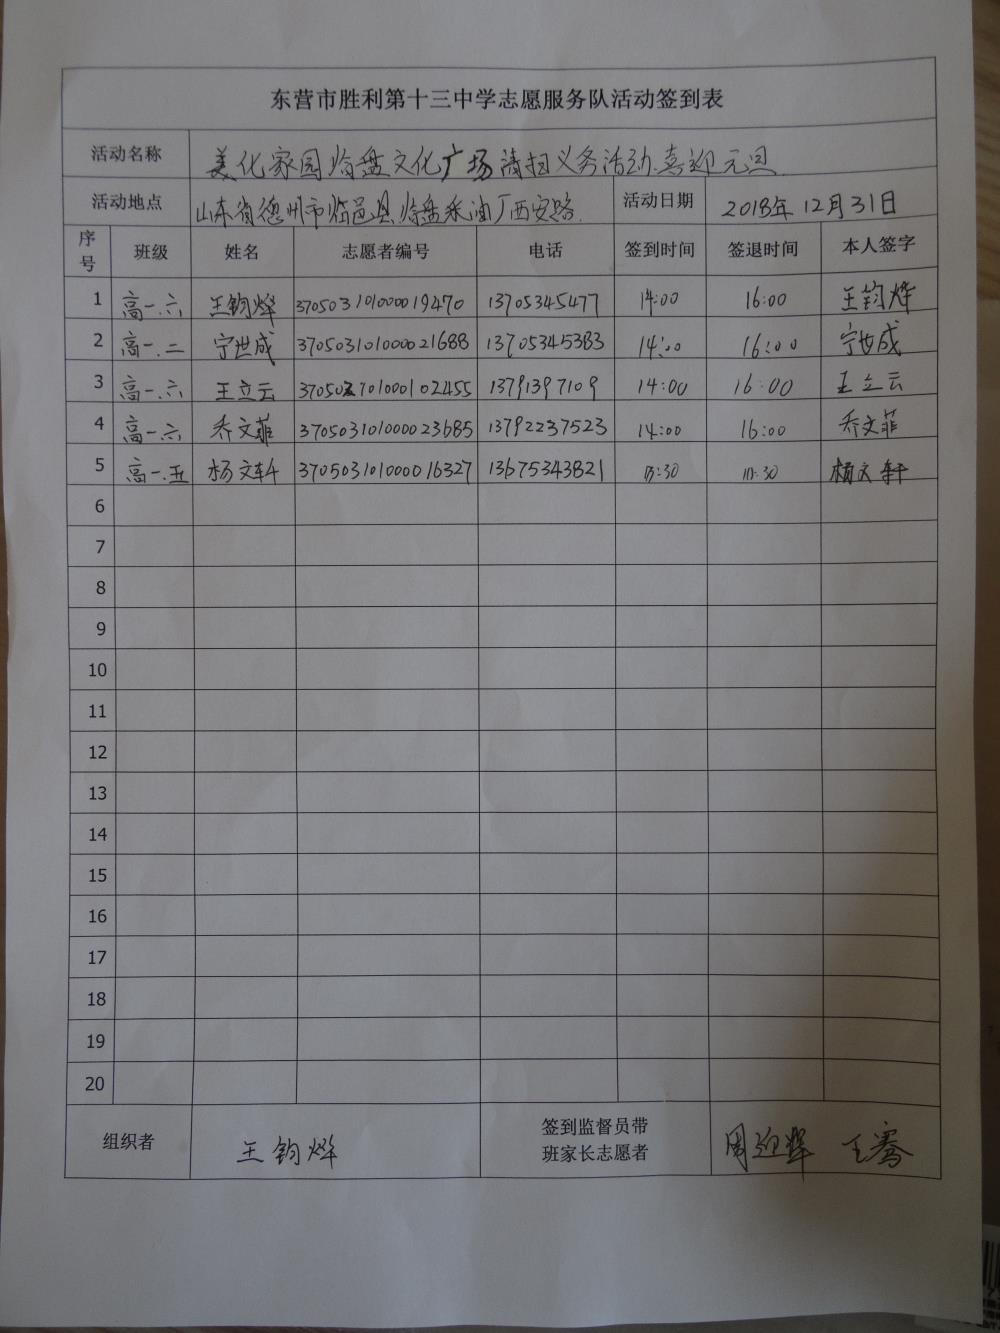 东营市胜利第十三中学志愿服务队活动签到表
活动名称 美化家园临盘文化广场清扫义务活动.喜迎元旦
活动地点 山东省德州市临邑县临盘采油厂西安路 活动日期 2018年12月31日
序号 班级 姓名 志愿者编号 电话 签到时间 签退时间 本人签字
1 高一.六 王钧烨 370503101000019470 13705345477 14:00 16:00 王钧烨
2 高一.二 宁世成 370503101000021688 13705345383 14:00 16:00 宁世成
3 高一.六 王立云 13791397109 14:00 16:00 王立云
4 高一.六 乔文菲 370503101000023685 13792237523 14:00 16:00 乔文菲
5 高一.五 杨文轩 370503101000016327 13675343821 杨文轩
6
7
8
9
10
11
12
13
14
15
16
17
18
19
20
组织者 王钧烨 签到监督员带
班家长志愿者 周迎辉 王骞